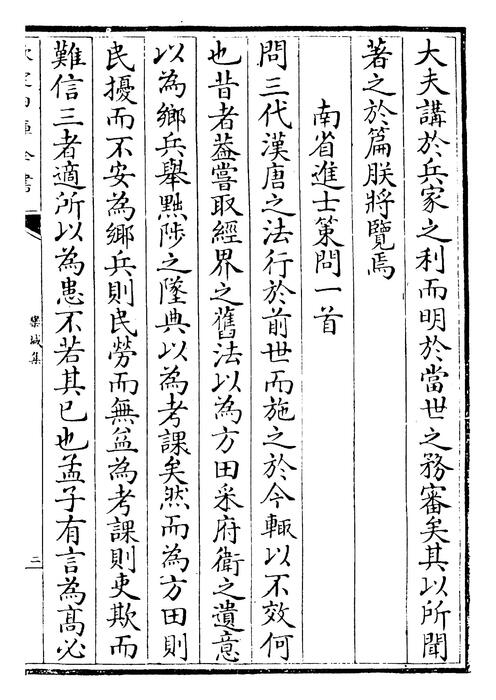 大夫講於兵家之利而明於當世之務審矣其以所聞
著之於篇朕將覽焉
南省進士策問一首
問三代漢唐之法行於前世而施之於今輒以不效何
也昔者葢嘗取經界之舊法以為方田采府衛之遺意
以為鄉兵舉黜陟之墜典以為考課矣然而為方田則
民擾而不安為鄉兵則民勞而無益為考課則吏欺而
難信三者適所以為患不若其已也孟子有言為髙必
欒城集
三